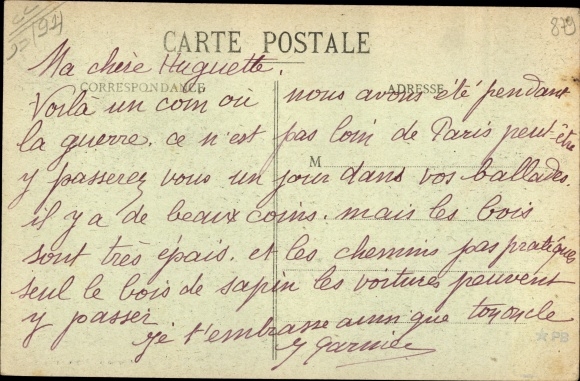 (91)
879
CARTE POSTALE
Ma chère Huguette.
CORRESPONDANCE
ADRESSE
Voilà un coin où nous avons été pendant
la guerre. ce n'est pas loin de Paris peut-être
M
y passerez vous un jour dans vos ballades.
il y a de beaux coins. mais les bois
sont très épais. et les chemins pas pratiques
seul le bois de sapin les voitures peuvent
y passer
je t'embrasse ainsi que ton oncle
PB